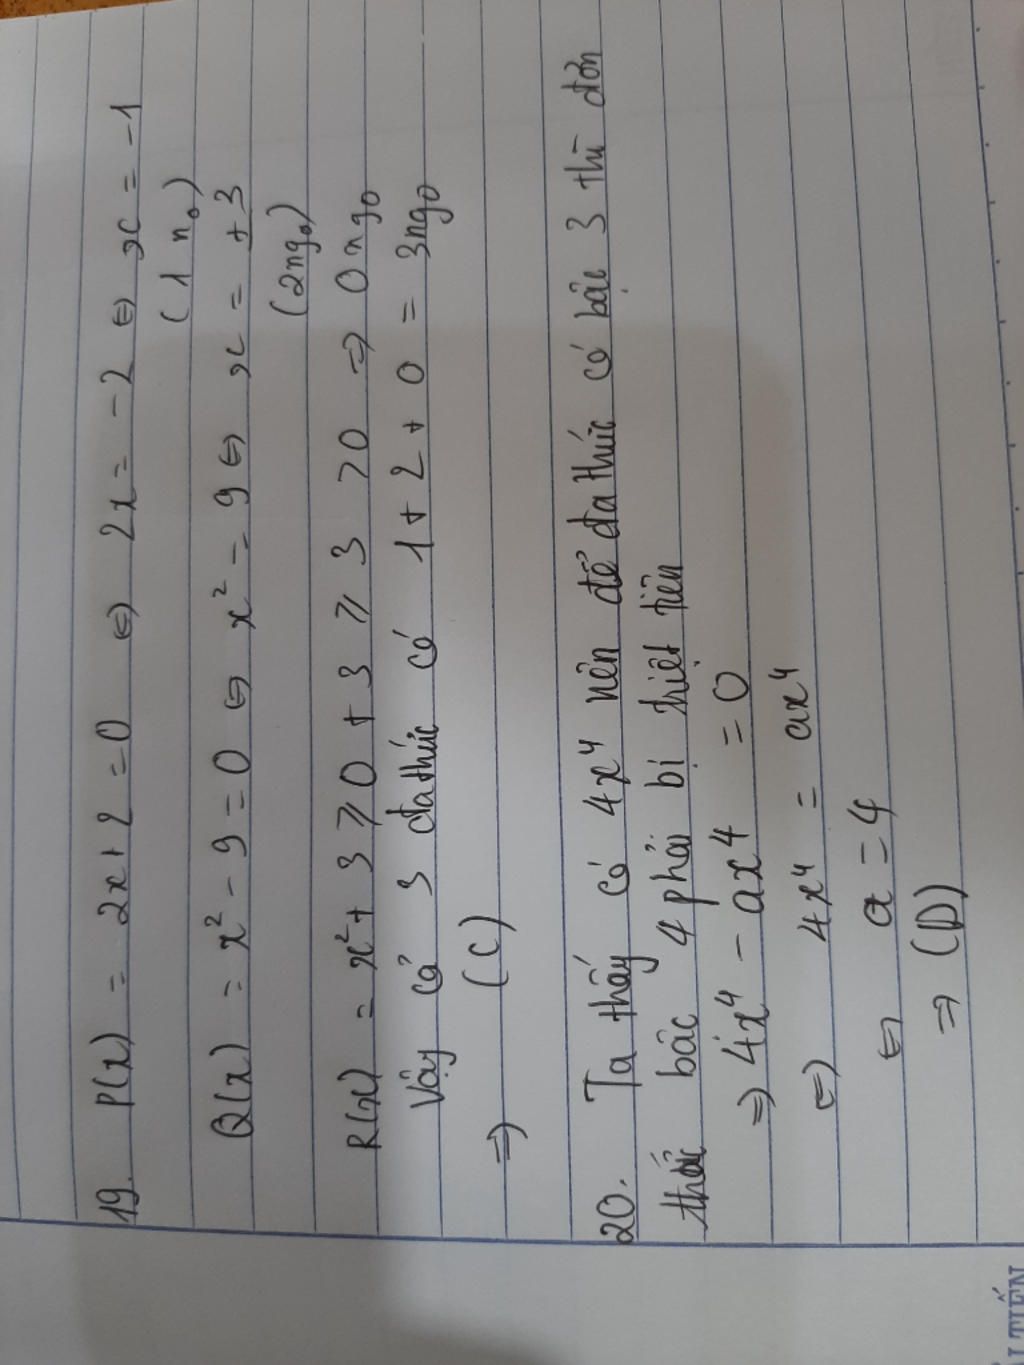 19. P(x) = 2x + 2 = 0 ⇔ 2x = -2 ⇔ x = -1
(1 n₀)
Q(x) = x² - 9 = 0 ⇔ x² = 9 ⇔ x = ±3
(2ng₀)
R(x) = x² + 3 ≥ 0 + 3 ≥ 3 > 0 ⇒ 0 ng₀
Vậy cả 3 đa thức có 1 + 2 + 0 = 3ng₀
⇒ (C)
20. Ta thấy có 4x⁴ nên để đa thức có bậc 3 thì đơn
thức bậc 4 phải bị triệt tiên
⇒ 4x⁴ - ax⁴ = 0
⇔ 4x⁴ = ax⁴
⇔ a = 4
⇒ (D)
TIẾN